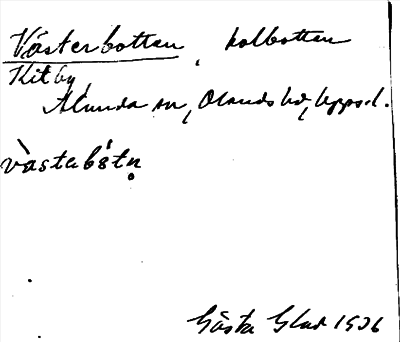 Västerbotten, kolbotten
Kitby,
Alunda sn, Olands hd, Uppsl.
västabótn̥
Gösta Glad 1936